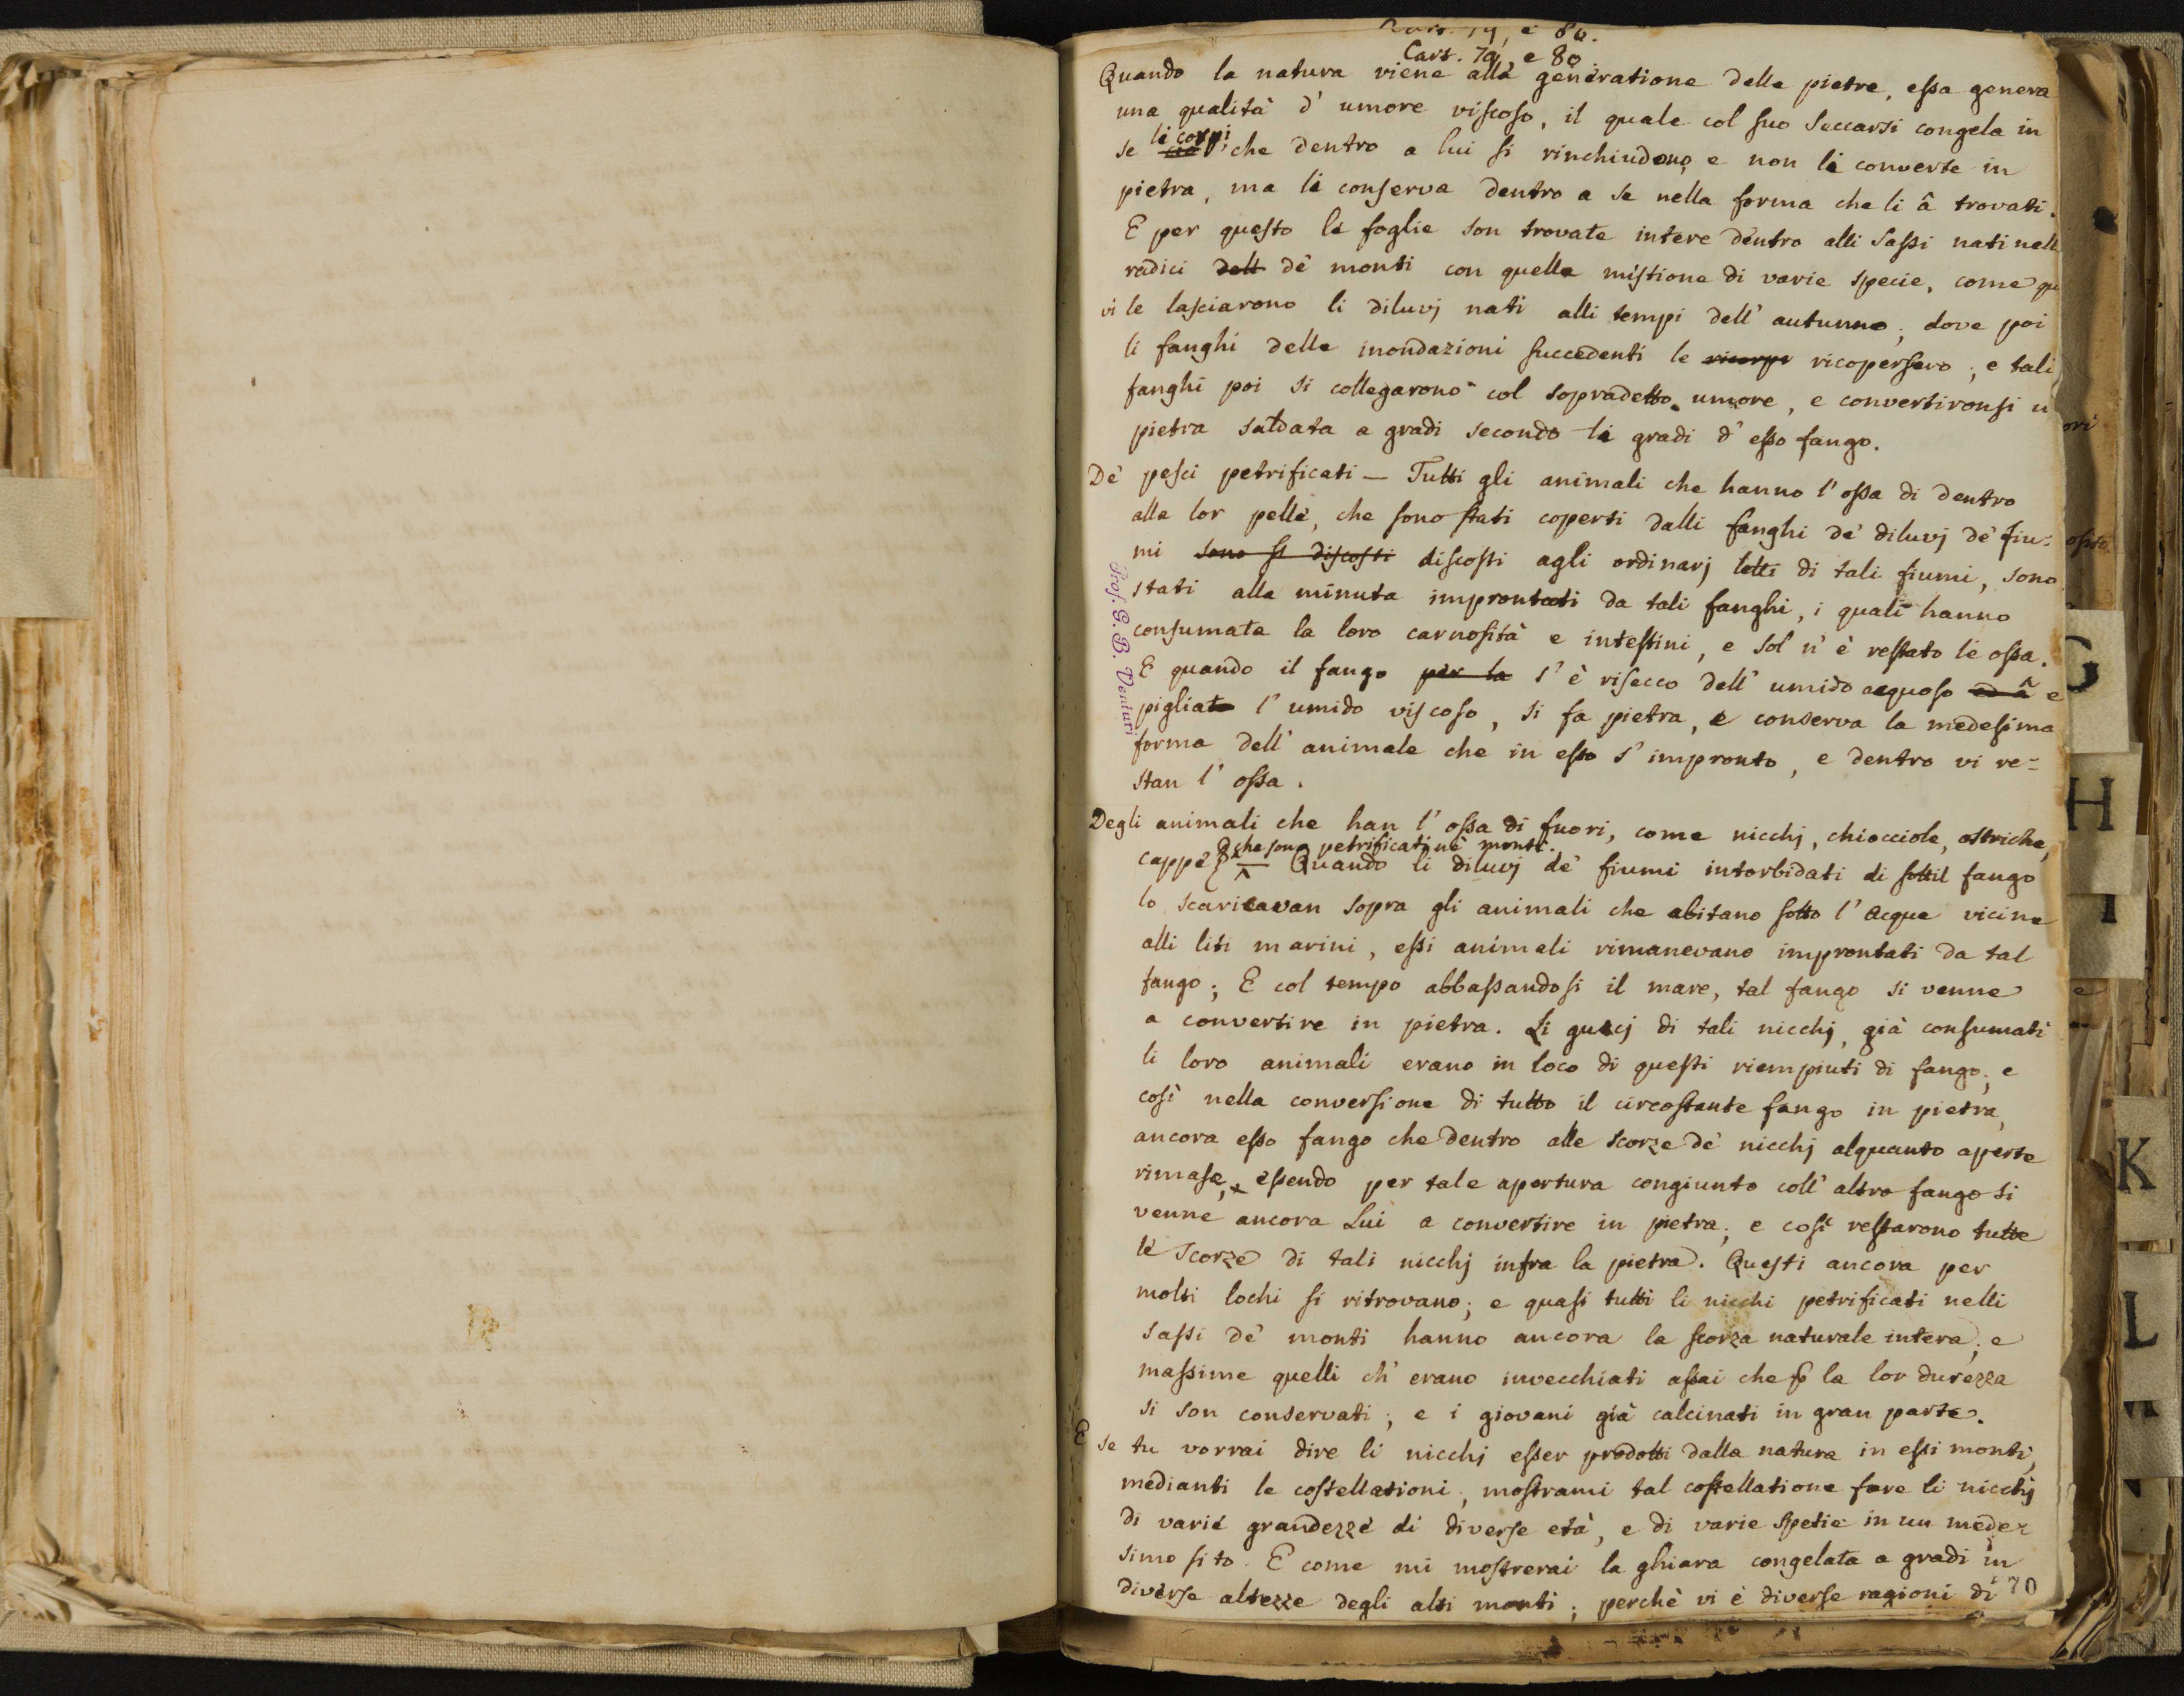 Cart. 79, e 80.
Cart. 79, e 80
Quando la natura viene alla generatione delle pietre, essa genera
una qualità d' umore viscoso, il quale col suo seccarsi congela in
se li corpi che dentro a lui si rinchiudono, e non li converte in
pietra, ma li conserva dentro a se nella forma che li â trovati.
E per questo le foglie son trovate intere dentro alli sassi nati nell
radici dell de' monti con quella mistione di varie specie, come qu
vi le lasciarono li diluvj nati alli tempi dell' autunno; dove poi
li fanghi delle inondazioni succedenti le ricorpe ricopersero; e tali
fanghi poi si collegarono col sopradetto umore, e convertironsi
pietra saldata a gradi secondo li gradi d' esso fango.
De' pesci petrificati — Tutti gli animali che hanno l' ossa di dentro
alla lor pelle, che sono stati coperti dalli fanghi de' diluvj de' fiu=
mi sono si discosti discosti agli ordinarj letti di tali fiumi, sono
stati alla minuta improntati da tali fanghi, i quali hanno
consumata la loro carnosità e intestini, e sol n' è restato le ossa.
E quando il fango per la s' è risecco dell' umido acquoso ed â e
pigliato l' umido viscoso, si fa pietra, e conserva la medesima
forma dell' animale che in esso s' impronto, e dentro vi re=
stan l' ossa.
Degli animali che han l' ossa di fuori, come nicchj, chiocciole, ostriche,
che sono petrificati ne' monti.
cappe &c — Quando li diluvj de' fiumi intorbidati di sottil fango
lo scaricavan sopra gli animali che abitano sotto l' acque vicine
alli liti marini, essi animali rimanevano improntati da tal
fango; E col tempo abbassandosi il mare, tal fango si venne
a convertire in pietra. Li guscj di tali nicchj, già consumati
li loro animali erano in loco di questi riempiuti di fango; e
così nella conversione di tutto il circostante fango in pietra,
ancora esso fango che dentro alle scorze de' nicchj alquanto aperte
rimase, essendo per tale apertura congiunto coll' altro fango si
venne ancora Lui a convertire in pietra; e così restarono tutte
le scorze di tali nicchj infra la pietra. Questi ancora per
molti lochi si ritrovano; e quasi tutti li nicchi petrificati nelli
sassi de' monti hanno ancora la scorza naturale intera; e
massime quelli ch' erano invecchiati assai che p la lor durezza
si son conservati; e i giovani già calcinati in gran parte.
E se tu vorrai dire li nicchj esser prodotti dalla natura in essi monti,
medianti le costellationi, mostrami tal costellatione fare li nicchj
di varie grandezze di diverse età, e di varie spetie in un mede=
simo sito. E come mi mostrerai la ghiara congelata a gradi in
diverse altezze degli alti monti; perchè vi è diverse ragioni di
70
Prof. G. B. Venturi
G
H
I
K
L